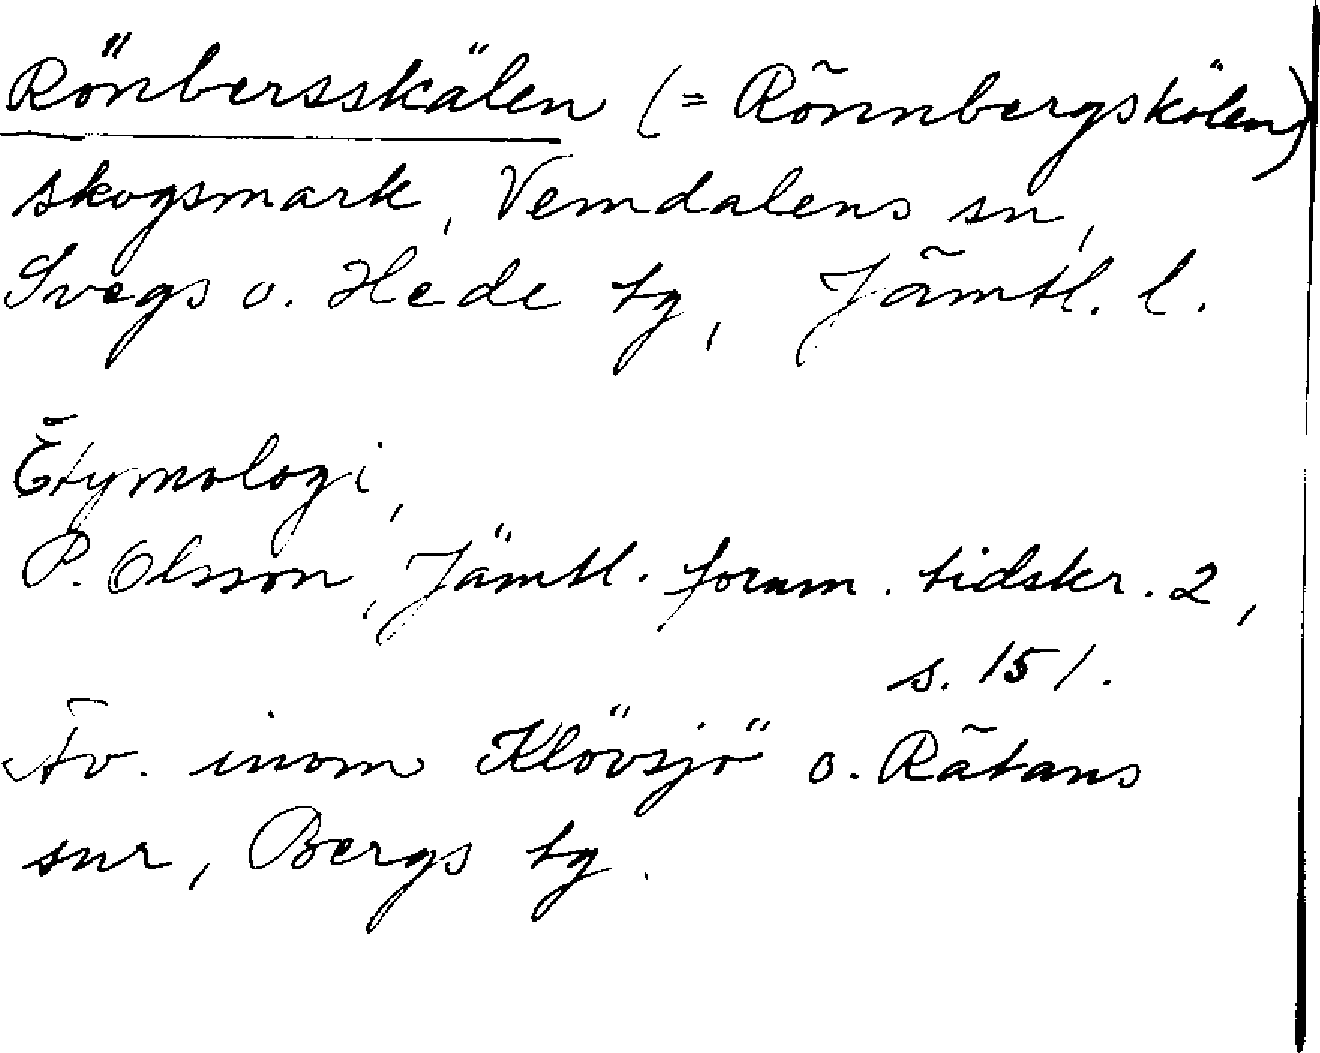 Rönbersskälen (= Rönnbergskölen)
skogsmark, Vemdalens sn,
Svegs o. Hede tg, Jämtl. l.
Etymologi,
P. Olsson, Jämtl. forum. tidskr. 2,
s. 151.
Äv. inom Klövsjö o. Rätans
snr, Bergs tg.